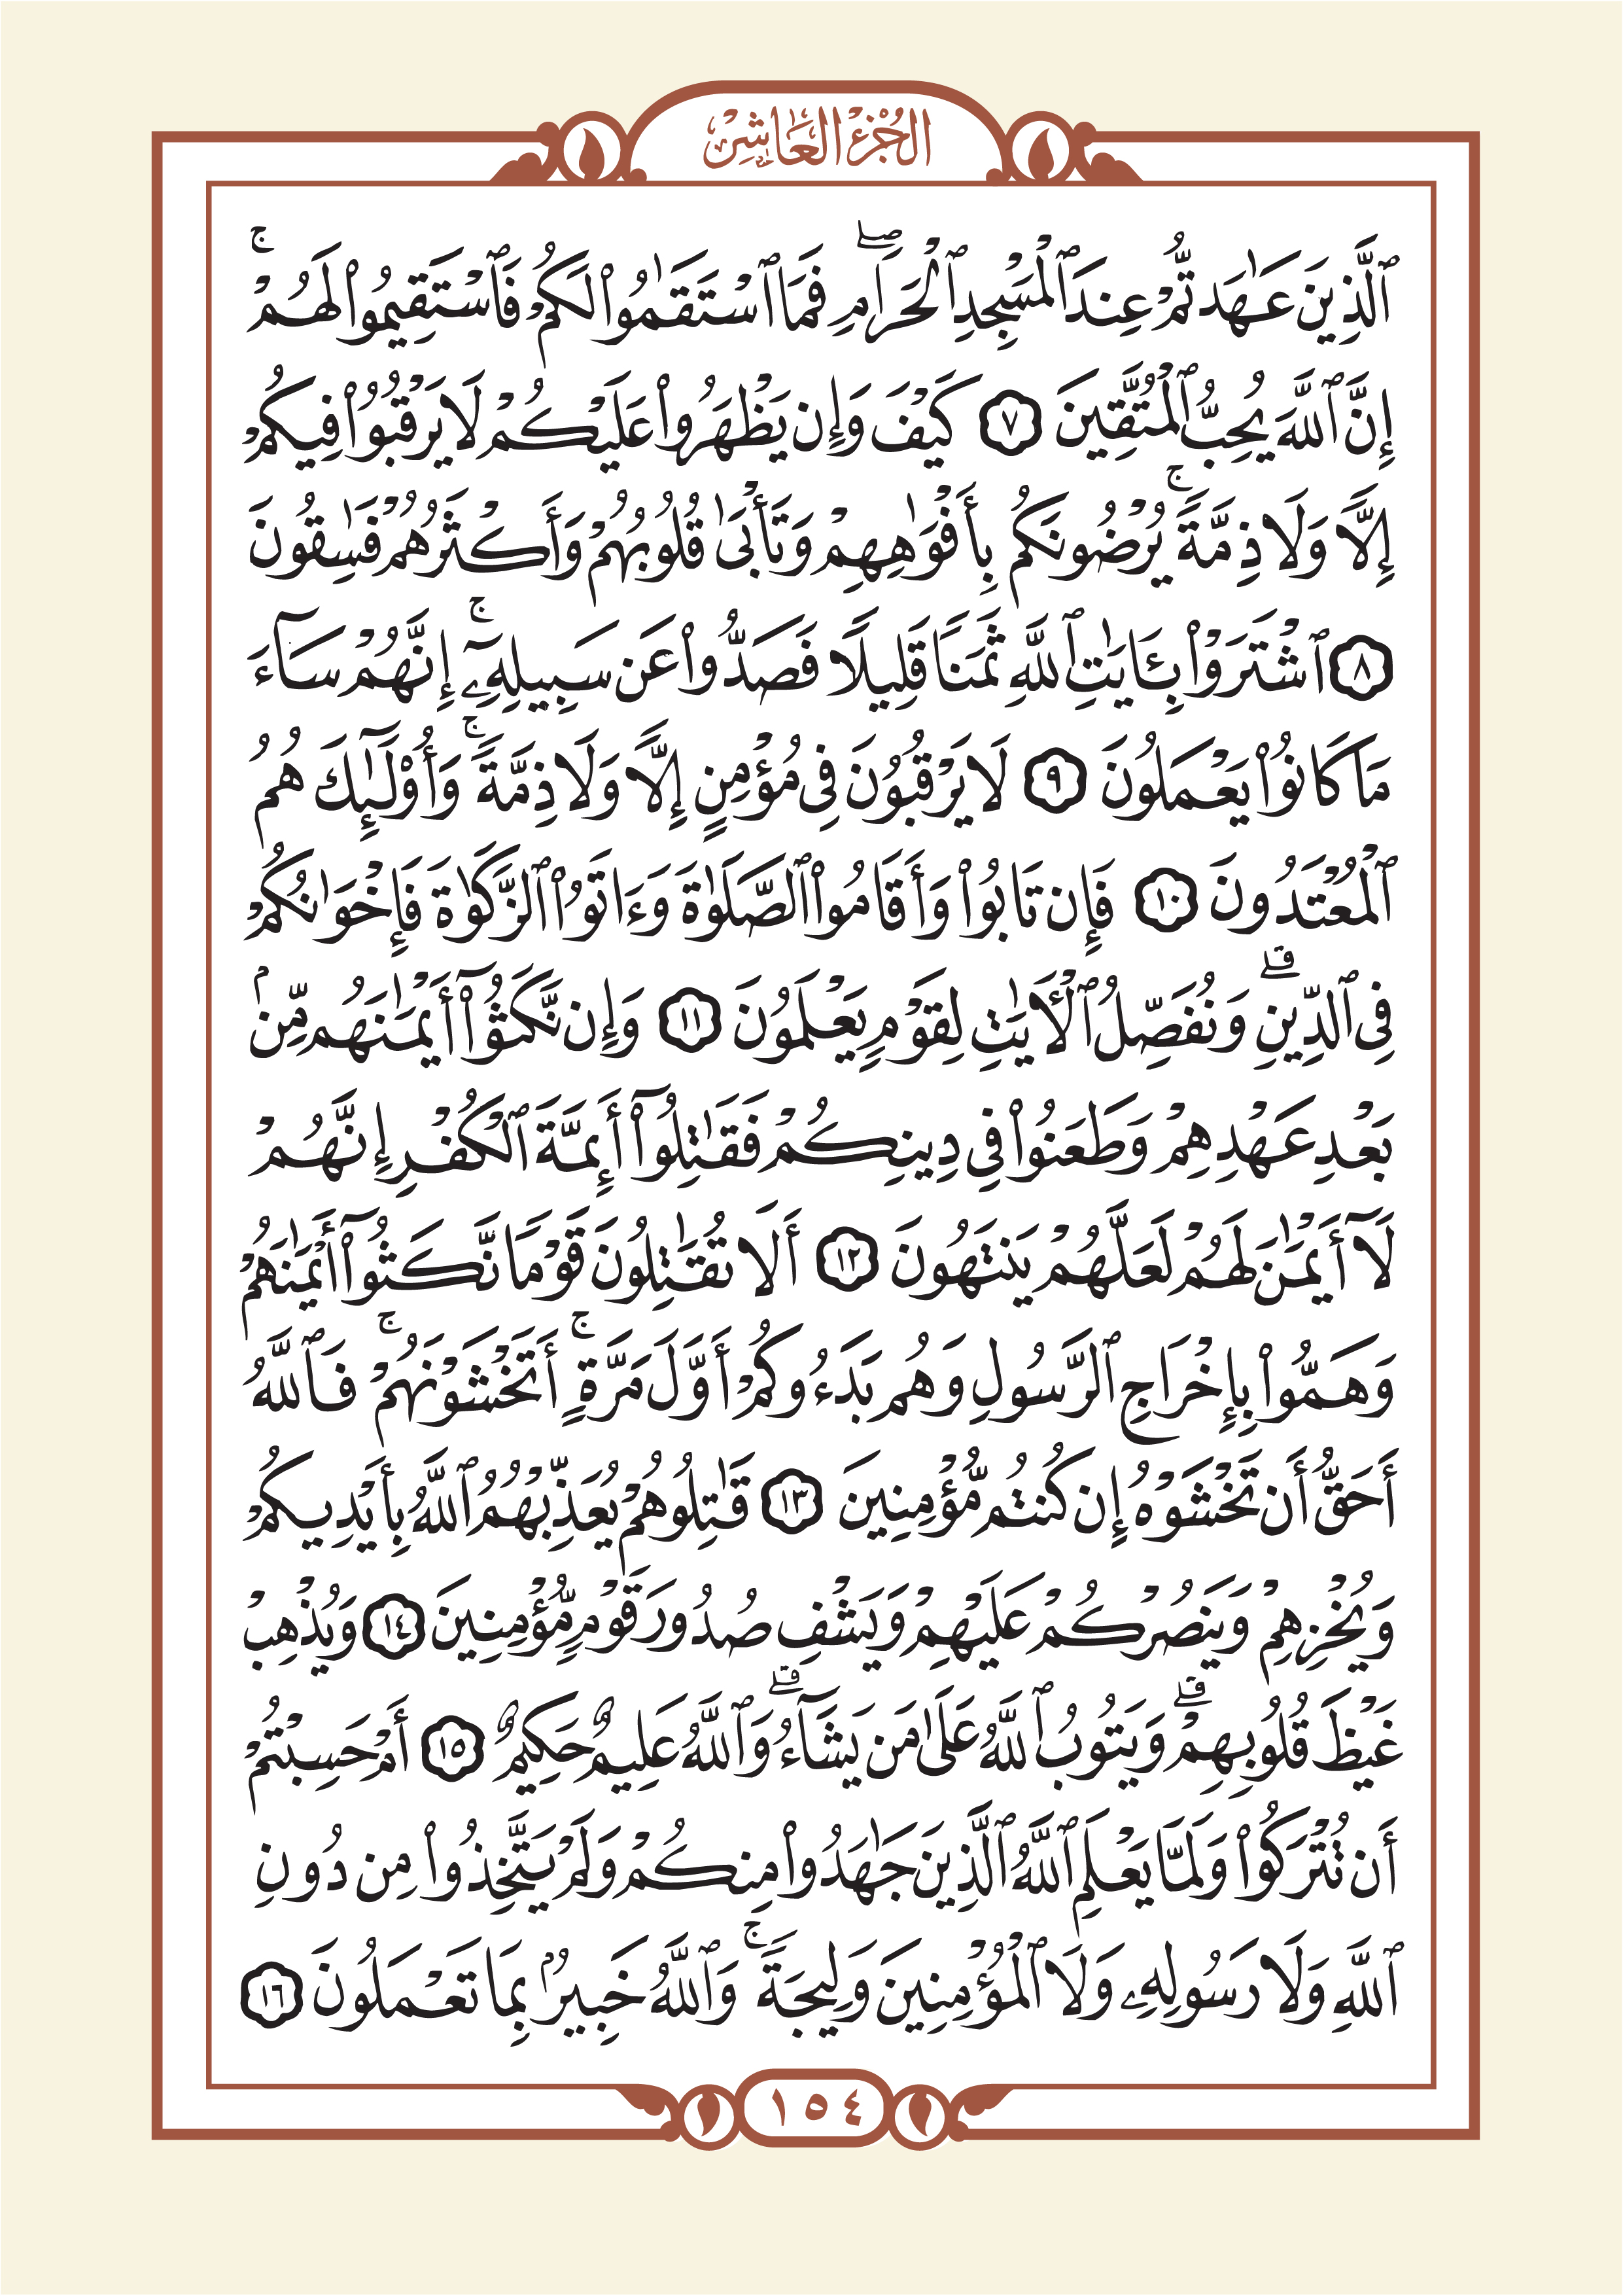 الجُزْءُ العَاشِرُ
ٱلَّذِينَ عَٰهَدتُّمْ عِندَ ٱلْمَسْجِدِ ٱلْحَرَامِ ۖ فَمَا ٱسْتَقَٰمُوا۟ لَكُمْ فَٱسْتَقِيمُوا۟ لَهُمْ ۚ
إِنَّ ٱللَّهَ يُحِبُّ ٱلْمُتَّقِينَ ٧ كَيْفَ وَإِن يَظْهَرُوا۟ عَلَيْكُمْ لَا يَرْقُبُوا۟ فِيكُمْ
إِلًّا وَلَا ذِمَّةً ۚ يُرْضُونَكُم بِأَفْوَٰهِهِمْ وَتَأْبَىٰ قُلُوبُهُمْ وَأَكْثَرُهُمْ فَٰسِقُونَ
٨ ٱشْتَرَوْا۟ بِـَٔايَٰتِ ٱللَّهِ ثَمَنًا قَلِيلًا فَصَدُّوا۟ عَن سَبِيلِهِۦٓ ۚ إِنَّهُمْ سَآءَ
مَا كَانُوا۟ يَعْمَلُونَ ٩ لَا يَرْقُبُونَ فِى مُؤْمِنٍ إِلًّا وَلَا ذِمَّةً ۚ وَأُو۟لَٰٓئِكَ هُمُ
ٱلْمُعْتَدُونَ ١٠ فَإِن تَابُوا۟ وَأَقَامُوا۟ ٱلصَّلَوٰةَ وَءَاتَوُا۟ ٱلزَّكَوٰةَ فَإِخْوَٰنُكُمْ
فِى ٱلدِّينِ ۗ وَنُفَصِّلُ ٱلْـَٔايَٰتِ لِقَوْمٍ يَعْلَمُونَ ١١ وَإِن نَّكَثُوٓا۟ أَيْمَٰنَهُم مِّنۢ
بَعْدِ عَهْدِهِمْ وَطَعَنُوا۟ فِى دِينِكُمْ فَقَٰتِلُوٓا۟ أَئِمَّةَ ٱلْكُفْرِ إِنَّهُمْ
لَآ أَيْمَٰنَ لَهُمْ لَعَلَّهُمْ يَنتَهُونَ ١٢ أَلَا تُقَٰتِلُونَ قَوْمًا نَّكَثُوٓا۟ أَيْمَٰنَهُمْ
وَهَمُّوا۟ بِإِخْرَاجِ ٱلرَّسُولِ وَهُم بَدَءُوكُمْ أَوَّلَ مَرَّةٍ ۚ أَتَخْشَوْنَهُمْ ۚ فَٱللَّهُ
أَحَقُّ أَن تَخْشَوْهُ إِن كُنتُم مُّؤْمِنِينَ ١٣ قَٰتِلُوهُمْ يُعَذِّبْهُمُ ٱللَّهُ بِأَيْدِيكُمْ
وَيُخْزِهِمْ وَيَنصُرْكُمْ عَلَيْهِمْ وَيَشْفِ صُدُورَ قَوْمٍ مُّؤْمِنِينَ ١٤ وَيُذْهِبْ
غَيْظَ قُلُوبِهِمْ ۗ وَيَتُوبُ ٱللَّهُ عَلَىٰ مَن يَشَآءُ ۗ وَٱللَّهُ عَلِيمٌ حَكِيمٌ ١٥ أَمْ حَسِبْتُمْ
أَن تُتْرَكُوا۟ وَلَمَّا يَعْلَمِ ٱللَّهُ ٱلَّذِينَ جَٰهَدُوا۟ مِنكُمْ وَلَمْ يَتَّخِذُوا۟ مِن دُونِ
ٱللَّهِ وَلَا رَسُولِهِۦ وَلَا ٱلْمُؤْمِنِينَ وَلِيجَةً ۚ وَٱللَّهُ خَبِيرٌۢ بِمَا تَعْمَلُونَ ١٦
١٥٤